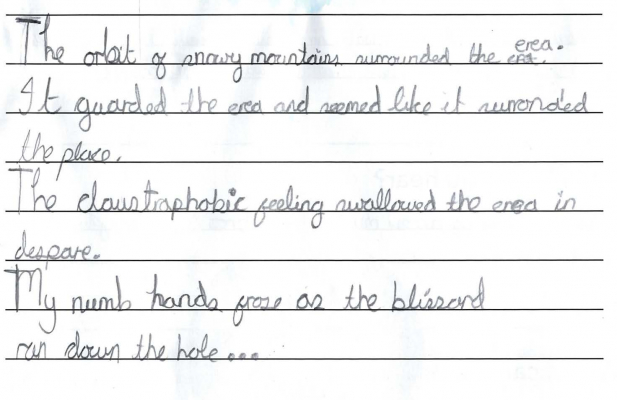 The orbit of snowy mountains surrounded the erea.
It guarded the erea and seemed like it surronded
the place.
The claustraphobic feeling swallowed the erea in
despare.
My numb hands froze as the blizzard
ran down the hole...